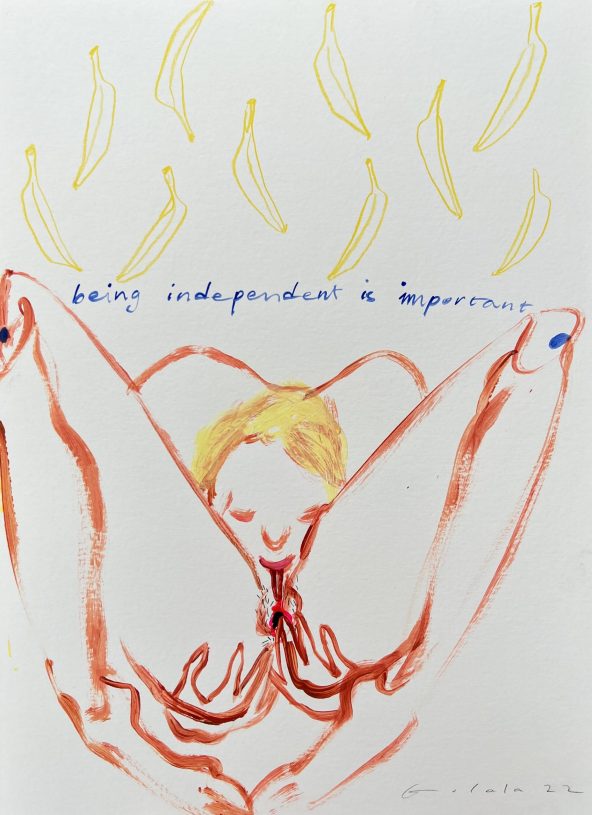 being independent is important
22